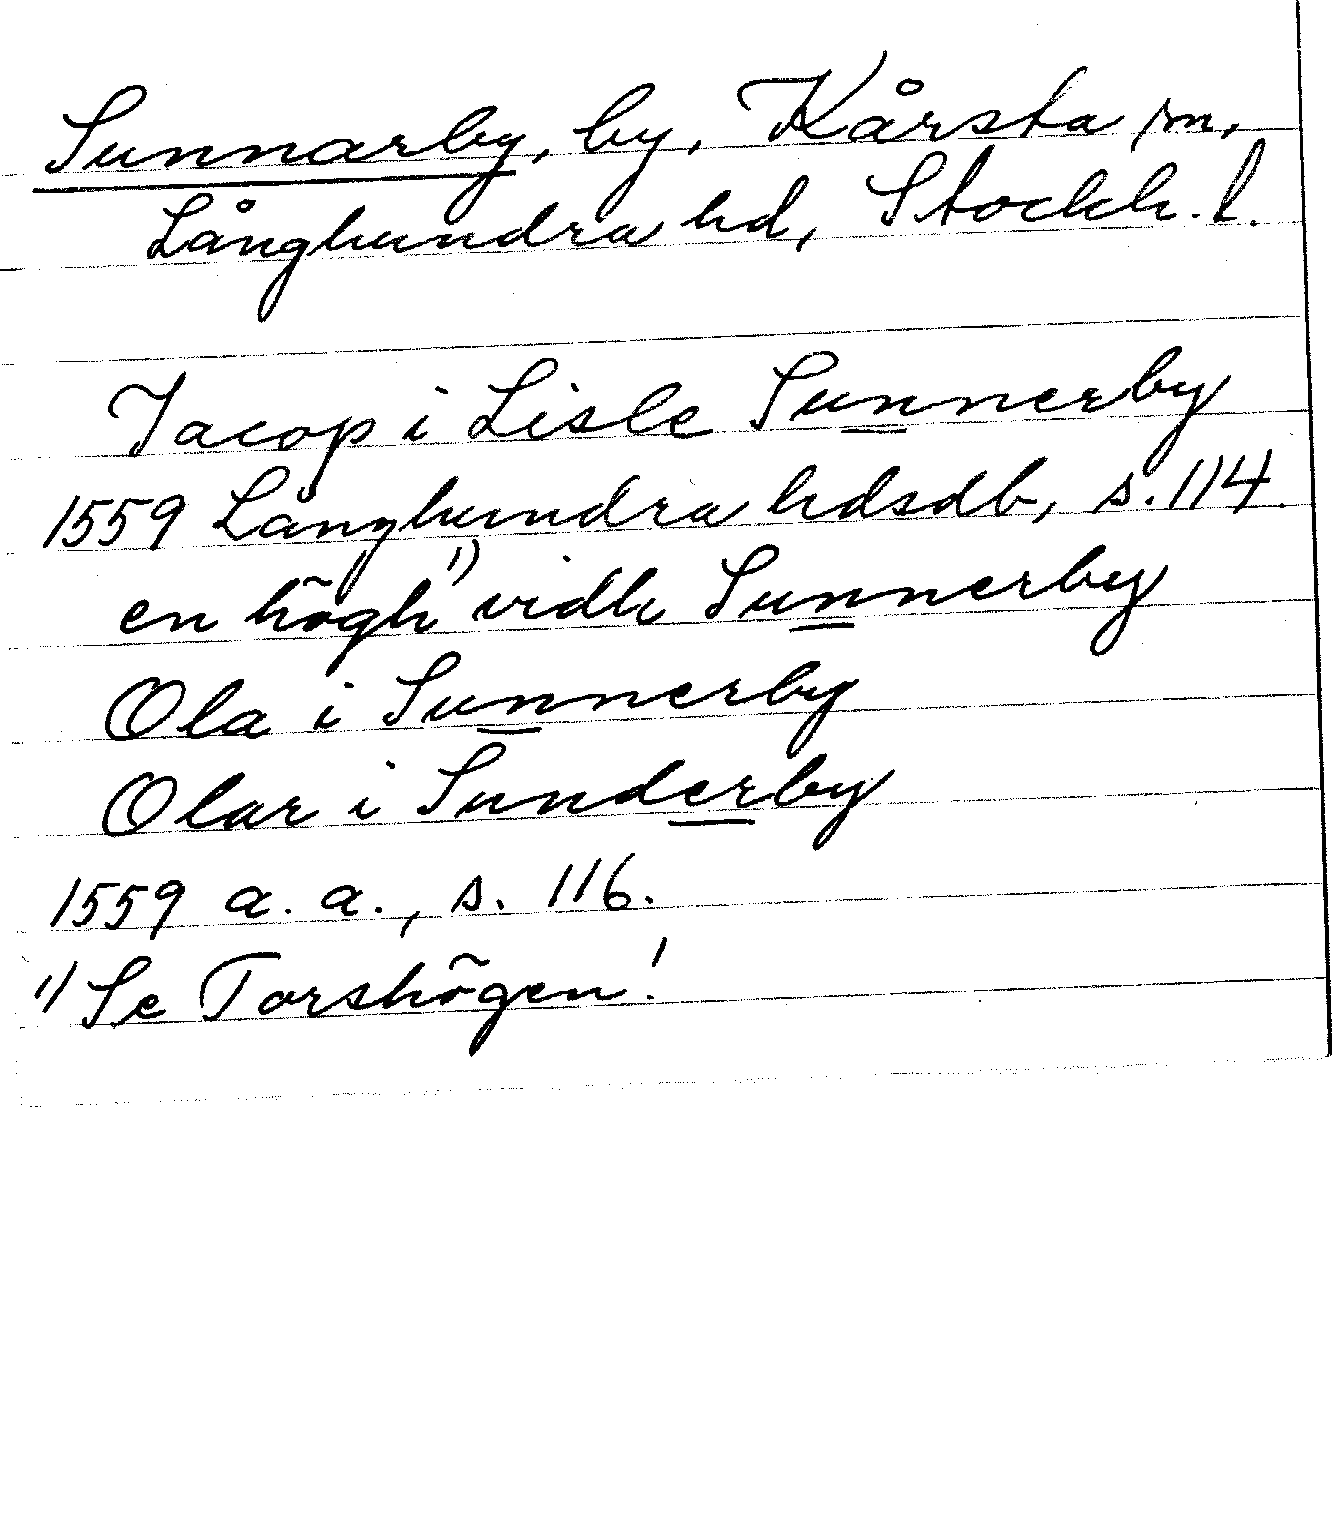 Sunnarby, by, Kårsta sn,
Långhundra hd, Stockh. l.
Jacop i Lisle Sunnerby
1559 Långhundra hdsdb, s. 114.
en högh¹⁾ vidh Sunnerby
Ola i Sunnerby
Olar i Sunderby
1559 a. a., s. 116.
¹⁾ Se Torshögen!